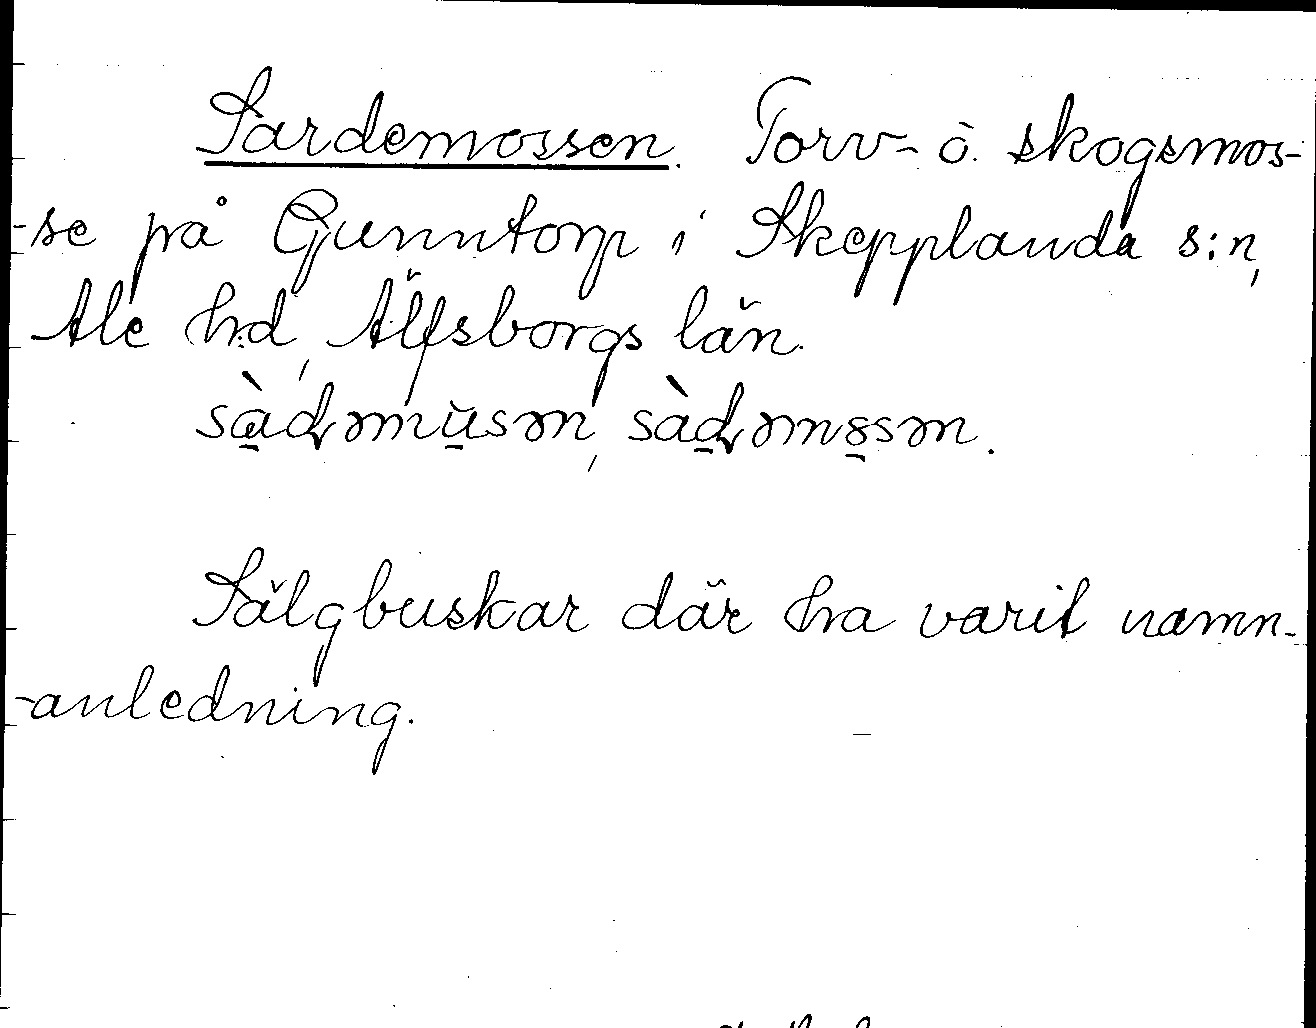 Sardemossen. Torv- o. skogsmos-
-se på Gunntorp i Skepplanda s:n,
Ale hd, Älfsborgs län.
Sälgbuskar där ha varit namn-
-anledning.